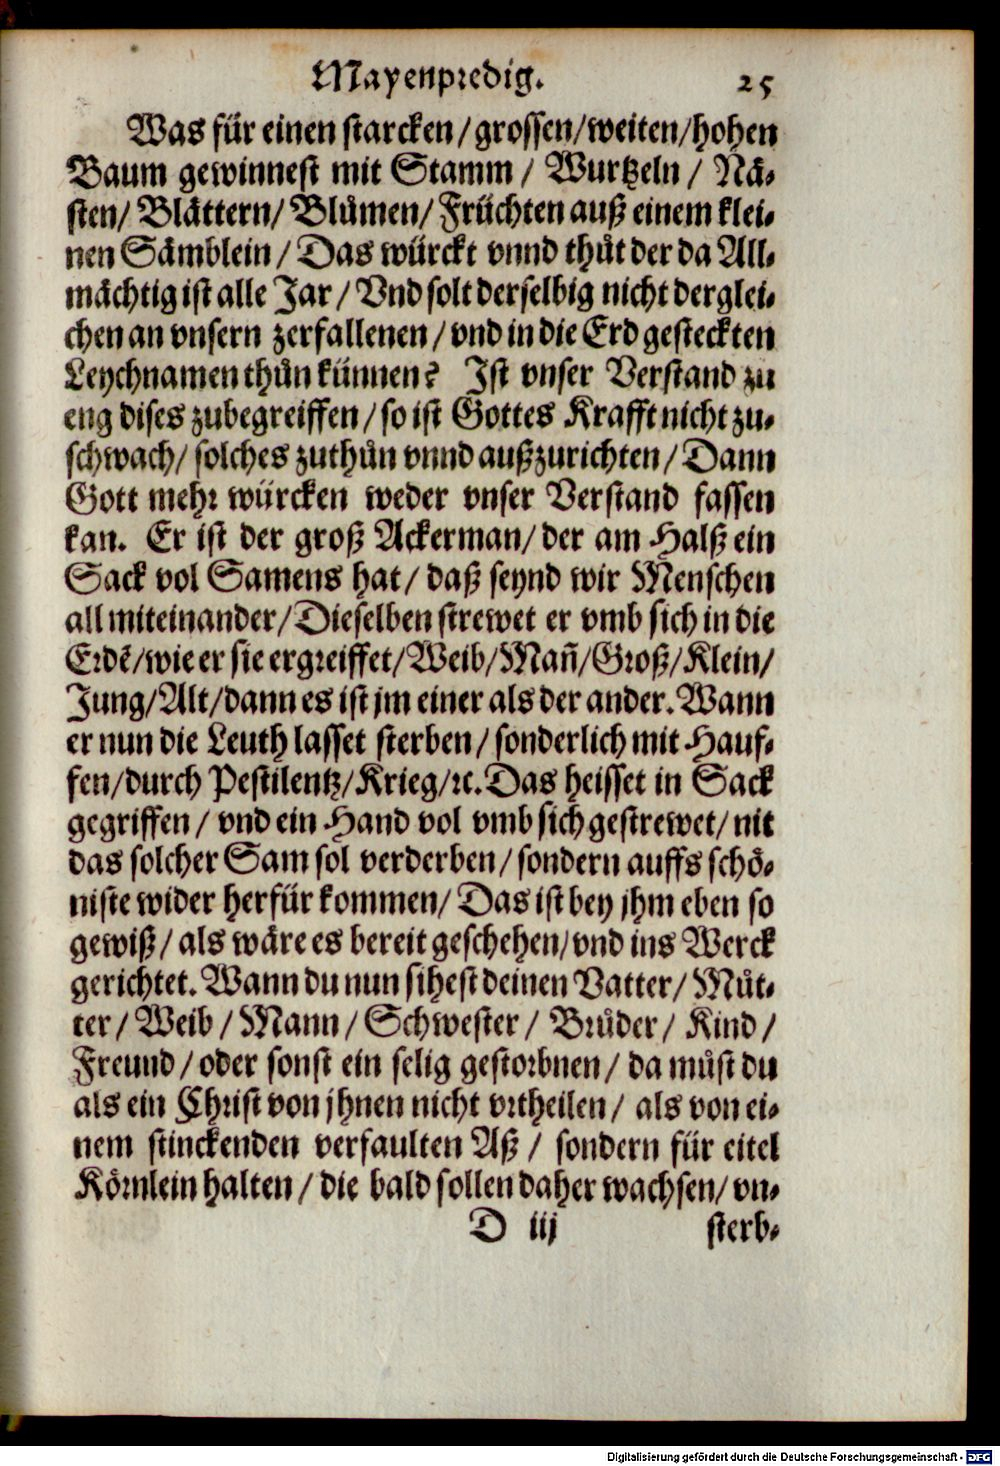 Mayenpredig. 25
Was für einen starcken/grossen/weiten/hohen
Baum gewinnest mit Stamm / Wurtzeln / Nä-
sten/ Blättern/ Blůmen/ Früchten auß einem klei-
nen Sämblein / Das würckt vnnd thůt der da All-
mächtig ist alle Jar / Vnd solt derselbig nicht derglei-
chen an vnsern zerfallenen / vnd in die Erd gesteckten
Leychnamen thůn künnen? Ist vnser Verstand zu
eng dises zubegreiffen / so ist Gottes Krafft nicht zu-
schwach/ solches zuthůn vnnd außzurichten / Dann
Gott mehr würcken weder vnser Verstand fassen
kan. Er ist der groß Ackerman/ der am Halß ein
Sack vol Samens hat / daß seynd wir Menschen
all miteinander / Dieselben strewet er vmb sich in die
Erdē/wie er sie ergreiffet/Weib/Mañ/Groß/Klein/
Jung/Alt/dann es ist jm einer als der ander. Wann
er nun die Leuth lasset sterben / sonderlich mit Hauf-
fen/durch Pestilentz/Krieg/ꝛc. Das heisset in Sack
gegriffen / vnd ein Hand vol vmb sich gestrewet/ nit
das solcher Sam sol verderben / sondern auffs schö-
niste wider herfür kommen/ Das ist bey jhm eben so
gewiß / als wäre es bereit geschehen/vnd ins Werck
gerichtet. Wann du nun sihest deinen Vatter/ Můt-
ter / Weib / Mann / Schwester / Brůder / Kind /
Freund / oder sonst ein selig gestorbnen / da můst du
als ein Christ von jhnen nicht vrtheilen / als von ei-
nem stinckenden verfaulten Aß / sondern für eitel
Körnlein halten / die bald sollen daher wachsen/ vn-
D iij sterb-
Digitalisierung gefördert durch die Deutsche Forschungsgemeinschaft - DFG